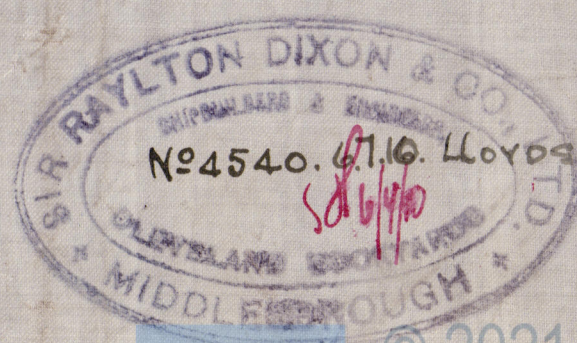 SIR RAYLTON DIXON & CO., LTD.
SHIPBUILDERS & ENGINEERS
Nº 4540. 6.7.10. LLOYDS
6/7/10
CLEVELAND DOCKYARDS
* MIDDLESBROUGH *
© 2021